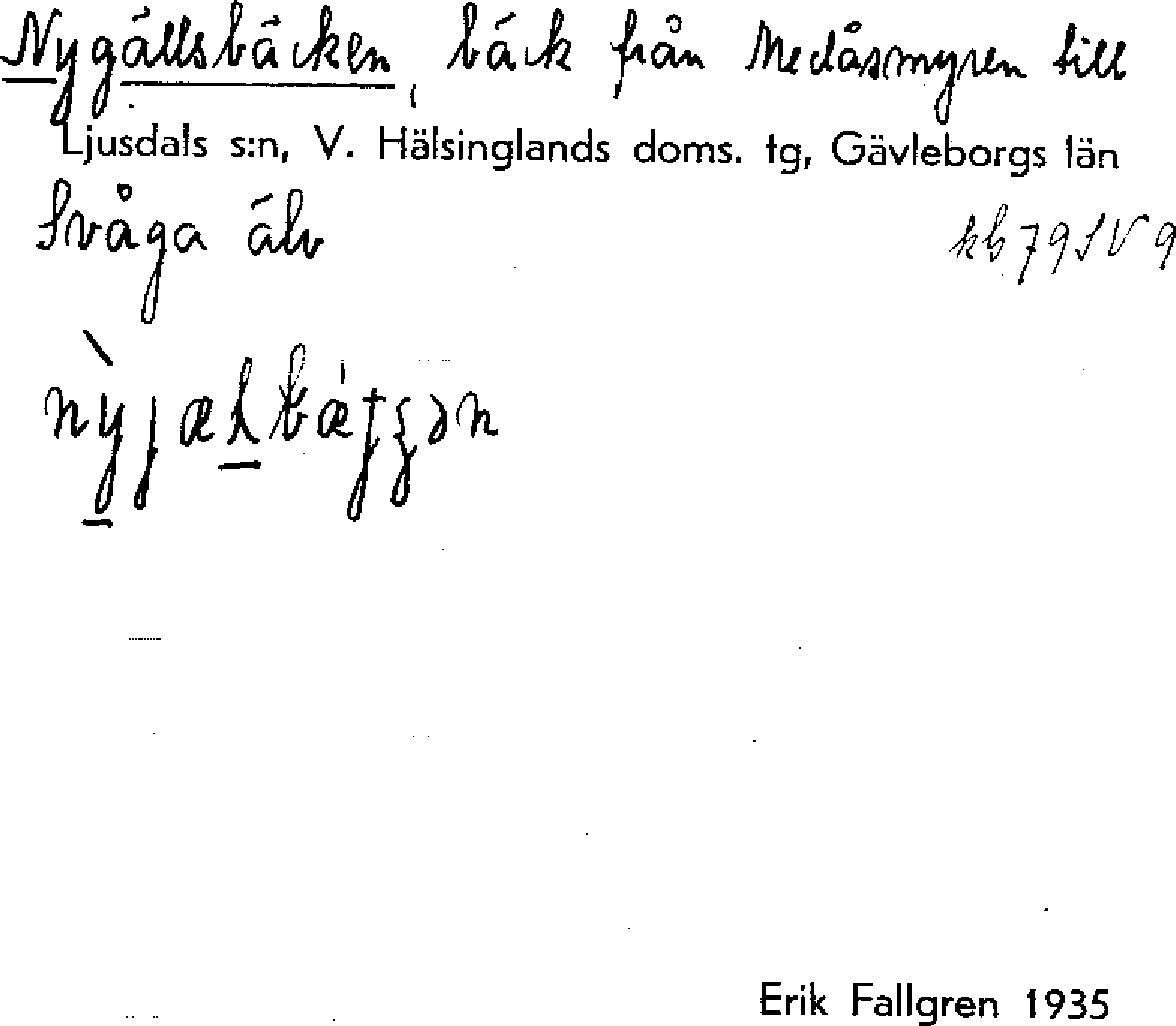 Nygällsbäcken, bäck från Medåsmyren till
Ljusdals s:n, V. Hälsinglands doms. tg, Gävleborgs län
Svåga älv
kb 79 SV 9
Erik Fallgren 1935